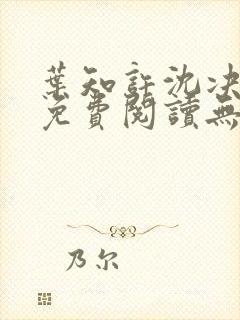 葉知許沈決
免費閱讀無
乃尔